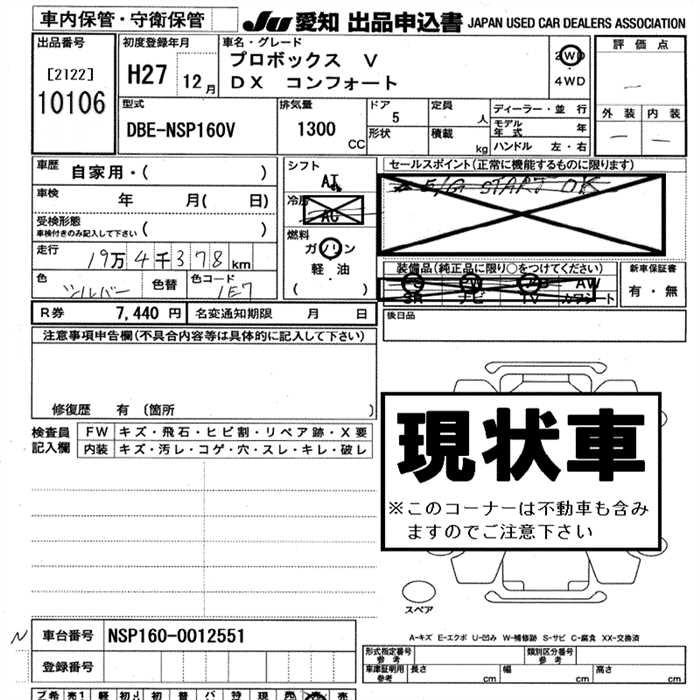 車内保管・守衛保管 JU 愛知 出品申込書 JAPAN USED CAR DEALERS ASSOCIATION
出品番号 初度登録年月 車名・グレード 評価点
[2122] H27 12月 プロボックス V 2WD
10106 DX コンフォート 4WD
外装 内装
型式 排気量 ドア 5 定員 人 ディーラー・並行
DBE-NSP160V 1300 CC 形状 積載 kg モデル年式 年
ハンドル 左・右
車歴 自家用・( ) シフト AT セールスポイント(正常に機能するものに限ります)
車検 年 月( 日) 冷房 AC E/G START OK
受検形態 車検付きのみ記入して下さい ( ) 燃料 ガソリン
走行 19万4千378km 軽・油 装備品(純正品に限り○をつけてください) 新車保証書
色 シルバー 色替 色コード 1E7 ( ) SR ナビ TV カワシート AW 有・無
R券 7,440円 名変通知期限 月 日 後日品
注意事項申告欄(不具合内容等は具体的に記入して下さい)
修復歴 有(箇所 )
検査員記入欄 FW キズ・飛石・ヒビ割・リペア跡・X要
内装 キズ・汚レ・コゲ・穴・スレ・キレ・破レ
現状車
※このコーナーは不動車も含み
ますのでご注意下さい
スペア
N 車台番号 NSP160-0012551
A-キズ E-エクボ U-凹み W-補修跡 S-サビ C-腐食 XX-交換済
登録番号 形式指定番号 参考 類別区分番号 参考
車庫証明用 参考 長さ cm 幅 cm 高さ cm